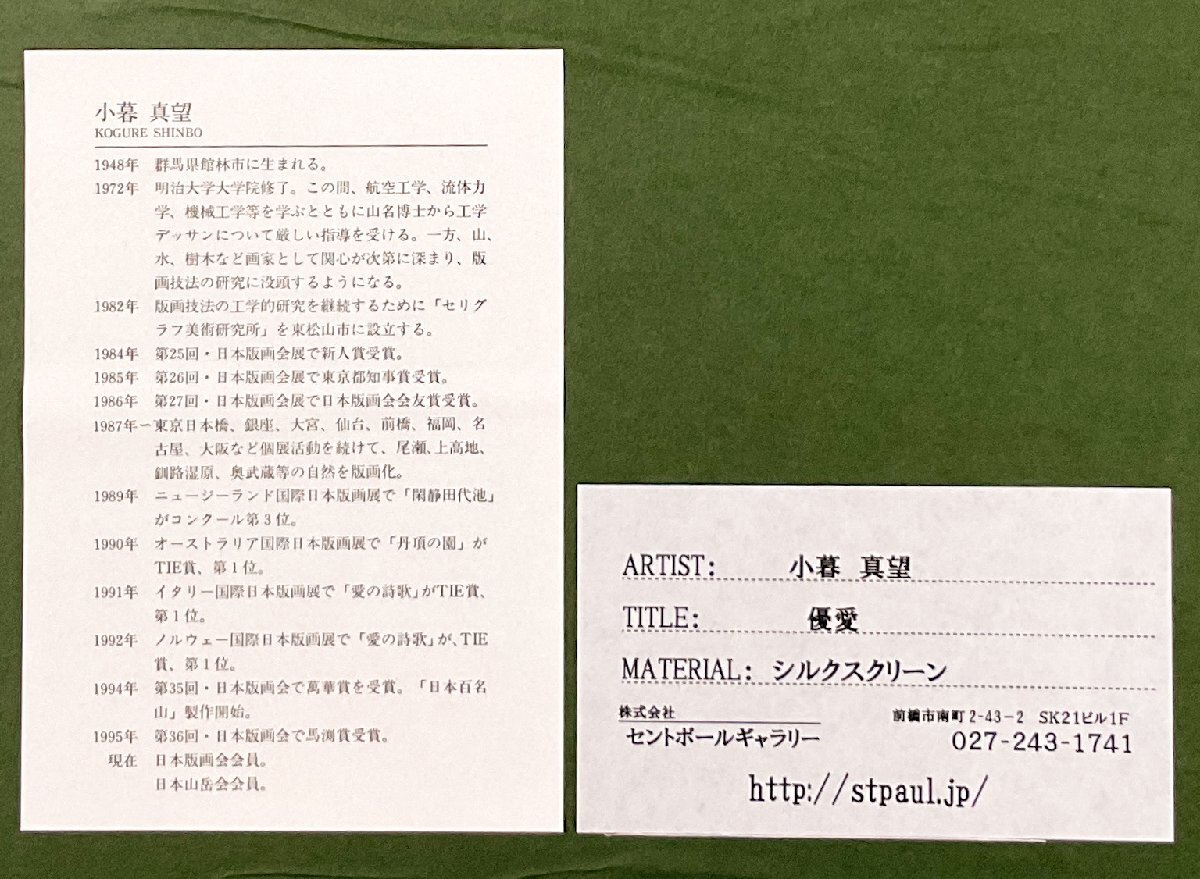 小暮 真望
KOGURE SHINBO
1948年 群馬県館林市に生まれる。
1972年 明治大学大学院修了。この間、航空工学、流体力
学、機械工学等を学ぶとともに山名博士から工学
デッサンについて厳しい指導を受ける。一方、山、
水、樹木など画家として関心が次第に深まり、版
画技法の研究に没頭するようになる。
1982年 版画技法の工学的研究を継続するために「セリグ
ラフ美術研究所」を東松山市に設立する。
1984年 第25回・日本版画会展で新人賞受賞。
1985年 第26回・日本版画会展で東京都知事賞受賞。
1986年 第27回・日本版画会展で日本版画会会友賞受賞。
1987年－東京日本橋、銀座、大宮、仙台、前橋、福岡、名
古屋、大阪など個展活動を続けて、尾瀬、上高地、
釧路湿原、奥武蔵等の自然を版画化。
1989年 ニュージーランド国際日本版画展で「閑静田代池」
がコンクール第3位。
1990年 オーストラリア国際日本版画展で「丹頂の園」が
TIE賞、第1位。
1991年 イタリー国際日本版画展で「愛の詩歌」がTIE賞、
第1位。
1992年 ノルウェー国際日本版画展で「愛の詩歌」が、TIE
賞、第1位。
1994年 第35回・日本版画会で萬華賞を受賞。「日本百名
山」製作開始。
1995年 第36回・日本版画会で馬渕賞受賞。
現在 日本版画会会員。
日本山岳会会員。
ARTIST: 小暮 真望
TITLE: 優愛
MATERIAL: シルクスクリーン
株式会社
セントポールギャラリー
前橋市南町2-43-2 SK21ビル1F
027-243-1741
http://stpaul.jp/